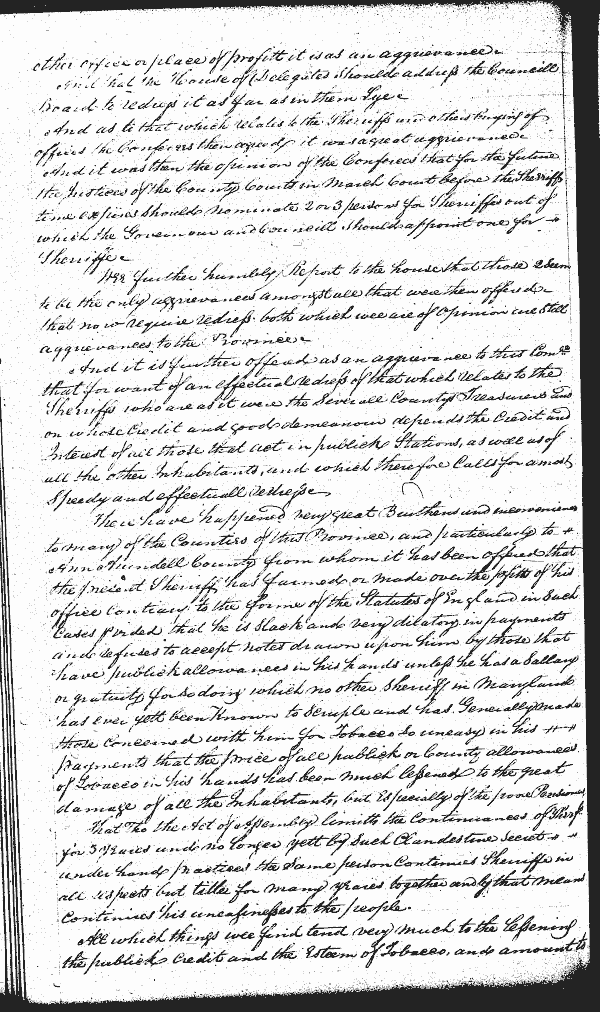 other office or place of profitt it is as an aggrievance
And that the House of Delegates should address the Councill
Board to redress it as far as in them Lye
And as to that which relates to the Sheriffs and others buying of
offices the Conferrees then agreed it was a great aggrievance
And it was then the opinion of the Conferees that for the future
the Justices of the County Courts in March Court before the Sheriffs
time expires should nominate 2 or 3 persons for Sheriffes out of
which the Governour and Councill should appoint one for
Sheriffe
Wee further humbly Report to the house that those 2 Seem
to be the only aggrievances amongst all that were then offered
that now require redress both which wee are of Opinion are Still
aggrievances to the Province
And it is further offered as an aggrievance to this Comee
that for want of an effectual redress of that which relates to the
Sheriffs who are as it were the Severall Countys Treasurers and
on whose Credit and good demeanour depends the Credit and
Interest of all those that act in publick Stations, as well as of
all the other Inhabitants, and which therefore Calls for a most
Speedy and effectuall redress
There have happened very great Burthens and inconveniences
to many of the Counties of this Province, and particularly to
Ann Arundell County from whom it has been offered that
the present Sheriff has farmed or made over the profitts of his
office contrary to the forme of the Statutes of England in Such
Cases pvided, that he is Slack and very dilatory in payments
and refuses to accept notes drawn upon him by those that
have publick allowances in his hands unless he has a Sallary
or gratuity for so doing which no other Sheriff in Maryland
has ever yett been Known to Scruple and has Generally made
those concerned with him for Tobacco So uneasy in his
payments that the price of all publick or County allowances
of Tobacco in his hands has been much lessened to the great
damage of all the Inhabitants, but Especially of the poore Pensioners
That Tho the Act of Assembly limitts the Continuances of Sheriffs
for 3 Yeares and no longer yett by Such Clandestine Secret
under hand practices the Same person Continues Sheriffe in
all respects but title for many yeares together and by that means
Continues his uneasinesses to the people.
All which things wee find tend very much to the lessening
the publick Credit and the Esteem of Tobacco, and amount to